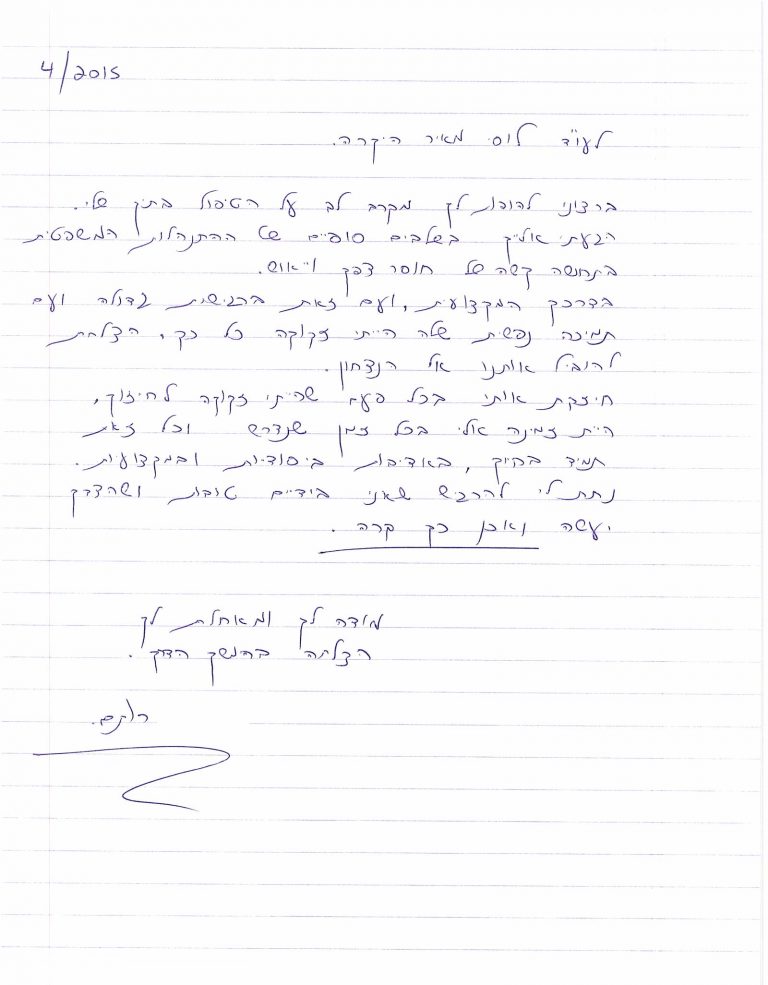 4/2015
לעו"ד לוסי מאיר היקרה.
ברצוני להודות לך מקרב לב על הטיפול בתיק שלי.
הגעתי אלייך בשלבים סופיים של ההתנהלות המשפטית
בתחושה קשה של חוסר צדק וייאוש.
בדרכך המקצועית, ועם זאת ברגישות גדולה ועם
תמיכה נפשית שלה הייתי זקוקה כל כך, הצלחת
להוביל אותנו אל הנצחון.
חיזקת אותי בכל פעם שהייתי זקוקה לחיזוק,
היית זמינה אלי בכל זמן שנדרש וכל זאת
תמיד בחיוך, באדיבות ביסודיות ובמקצועיות.
נתת לי להרגיש שאני בידיים טובות ושהצדק
יעשה ואכן כך קרה.
מודה לך ומאחלת לך
הצלחה בהמשך הדרך.